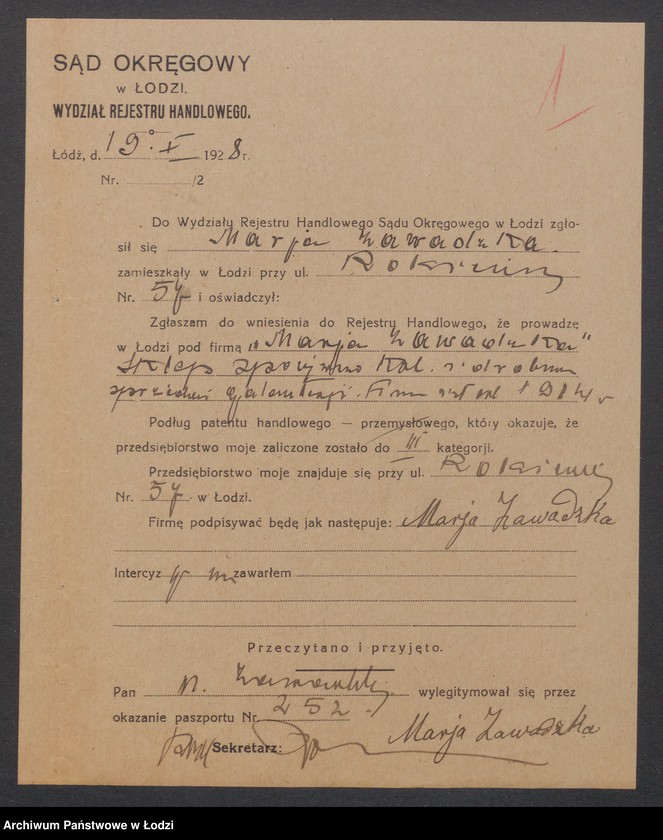 SĄD OKRĘGOWY
w ŁODZI.
WYDZIAŁ REJESTRU HANDLOWEGO.
Łódź, d. 19. X 1928 r.
Nr. /2
Do Wydziału Rejestru Handlowego Sądu Okręgowego w Łodzi zgło-
sił się Marja Zawadzka
zamieszkały w Łodzi przy ul.
Nr. 57 i oświadczył:
Zgłaszam do wniesienia do Rejestru Handlowego, że prowadzę
w Łodzi pod firmą „Marja Zawadzka"
sklep spożywczo kol. i drobna
sprzedaż galanterji. Firma istn. od 1914 r
Podług patentu handlowego — przemysłowego, który okazuje, że
przedsiębiorstwo moje zaliczone zostało do III kategorji.
Przedsiębiorstwo moje znajduje się przy ul.
Nr. 57 w Łodzi.
Firmę podpisywać będę jak następuje: Marja Zawadzka
Intercyzy nie zawarłem
Przeczytano i przyjęto.
Pan wylegitymował się przez
okazanie paszportu Nr. 252
Sekretarz: Marja Zawadzka
Archiwum Państwowe w Łodzi